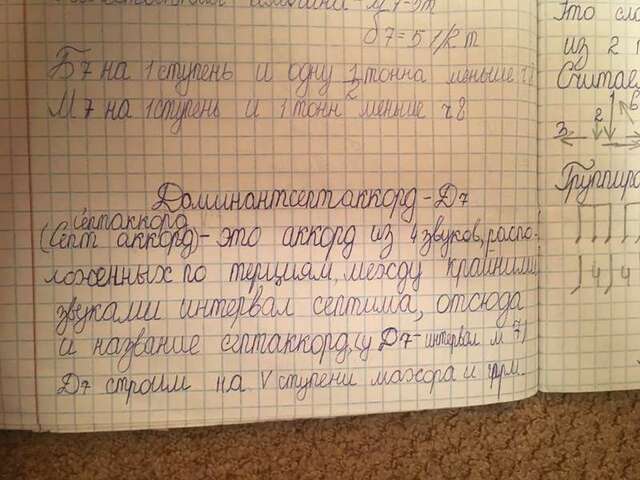 б7 = 5 1/2 т
Б7 на 1 ступень и одну 1/2 тонна меньше ч8
М7 на 1 ступень и 1 тонн меньше ч8
Доминантсептаккорд - D7
(септаккорд
(септ аккорд) - это аккорд из 4 звуков, распо-
ложенных по терциям, между крайними
звуками интервал септима, отсюда
и название септаккорд (у D7 - интервал м 7)
D7 строим на V ступени мажора и гарм.
Это
из 2
(считая
1
2
3
Группир